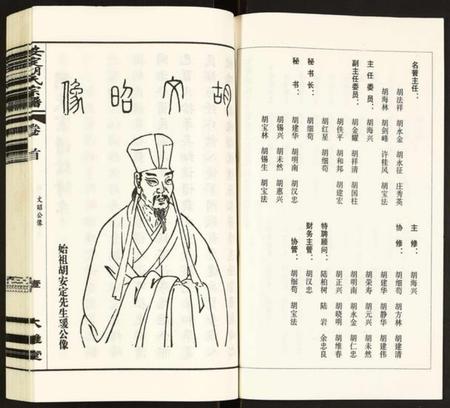 名誉主任：
胡法祥 胡水金 胡永征 庄秀英
胡海林 胡剑峰 许桂凤 胡宝法
主任委员：胡海兴
副主任委员：胡金耀 胡祥清 胡国柱
胡佚平 胡和邦 胡建宏
胡红星 胡细苟
秘书长：胡细苟
秘书：胡建华 胡明南 胡汉忠
胡锡兴 胡未然 胡惠兴
胡宝林 胡锡生
主修：胡海兴
协修：胡细苟 胡方林 胡建清
胡建华 胡静华 胡建伟
胡荣寿 胡元兴 胡未然
胡明南 胡水金 胡仁忠
胡正兴 胡晓明 胡维春
特聘顾问：陆柏树 陆岩 余忠良
财务主管：胡汉忠
协管：胡细苟 胡宝法
胡文昭像
始祖胡安定先生瑗公像
安定胡氏宗谱
卷首
文昭公像
壹